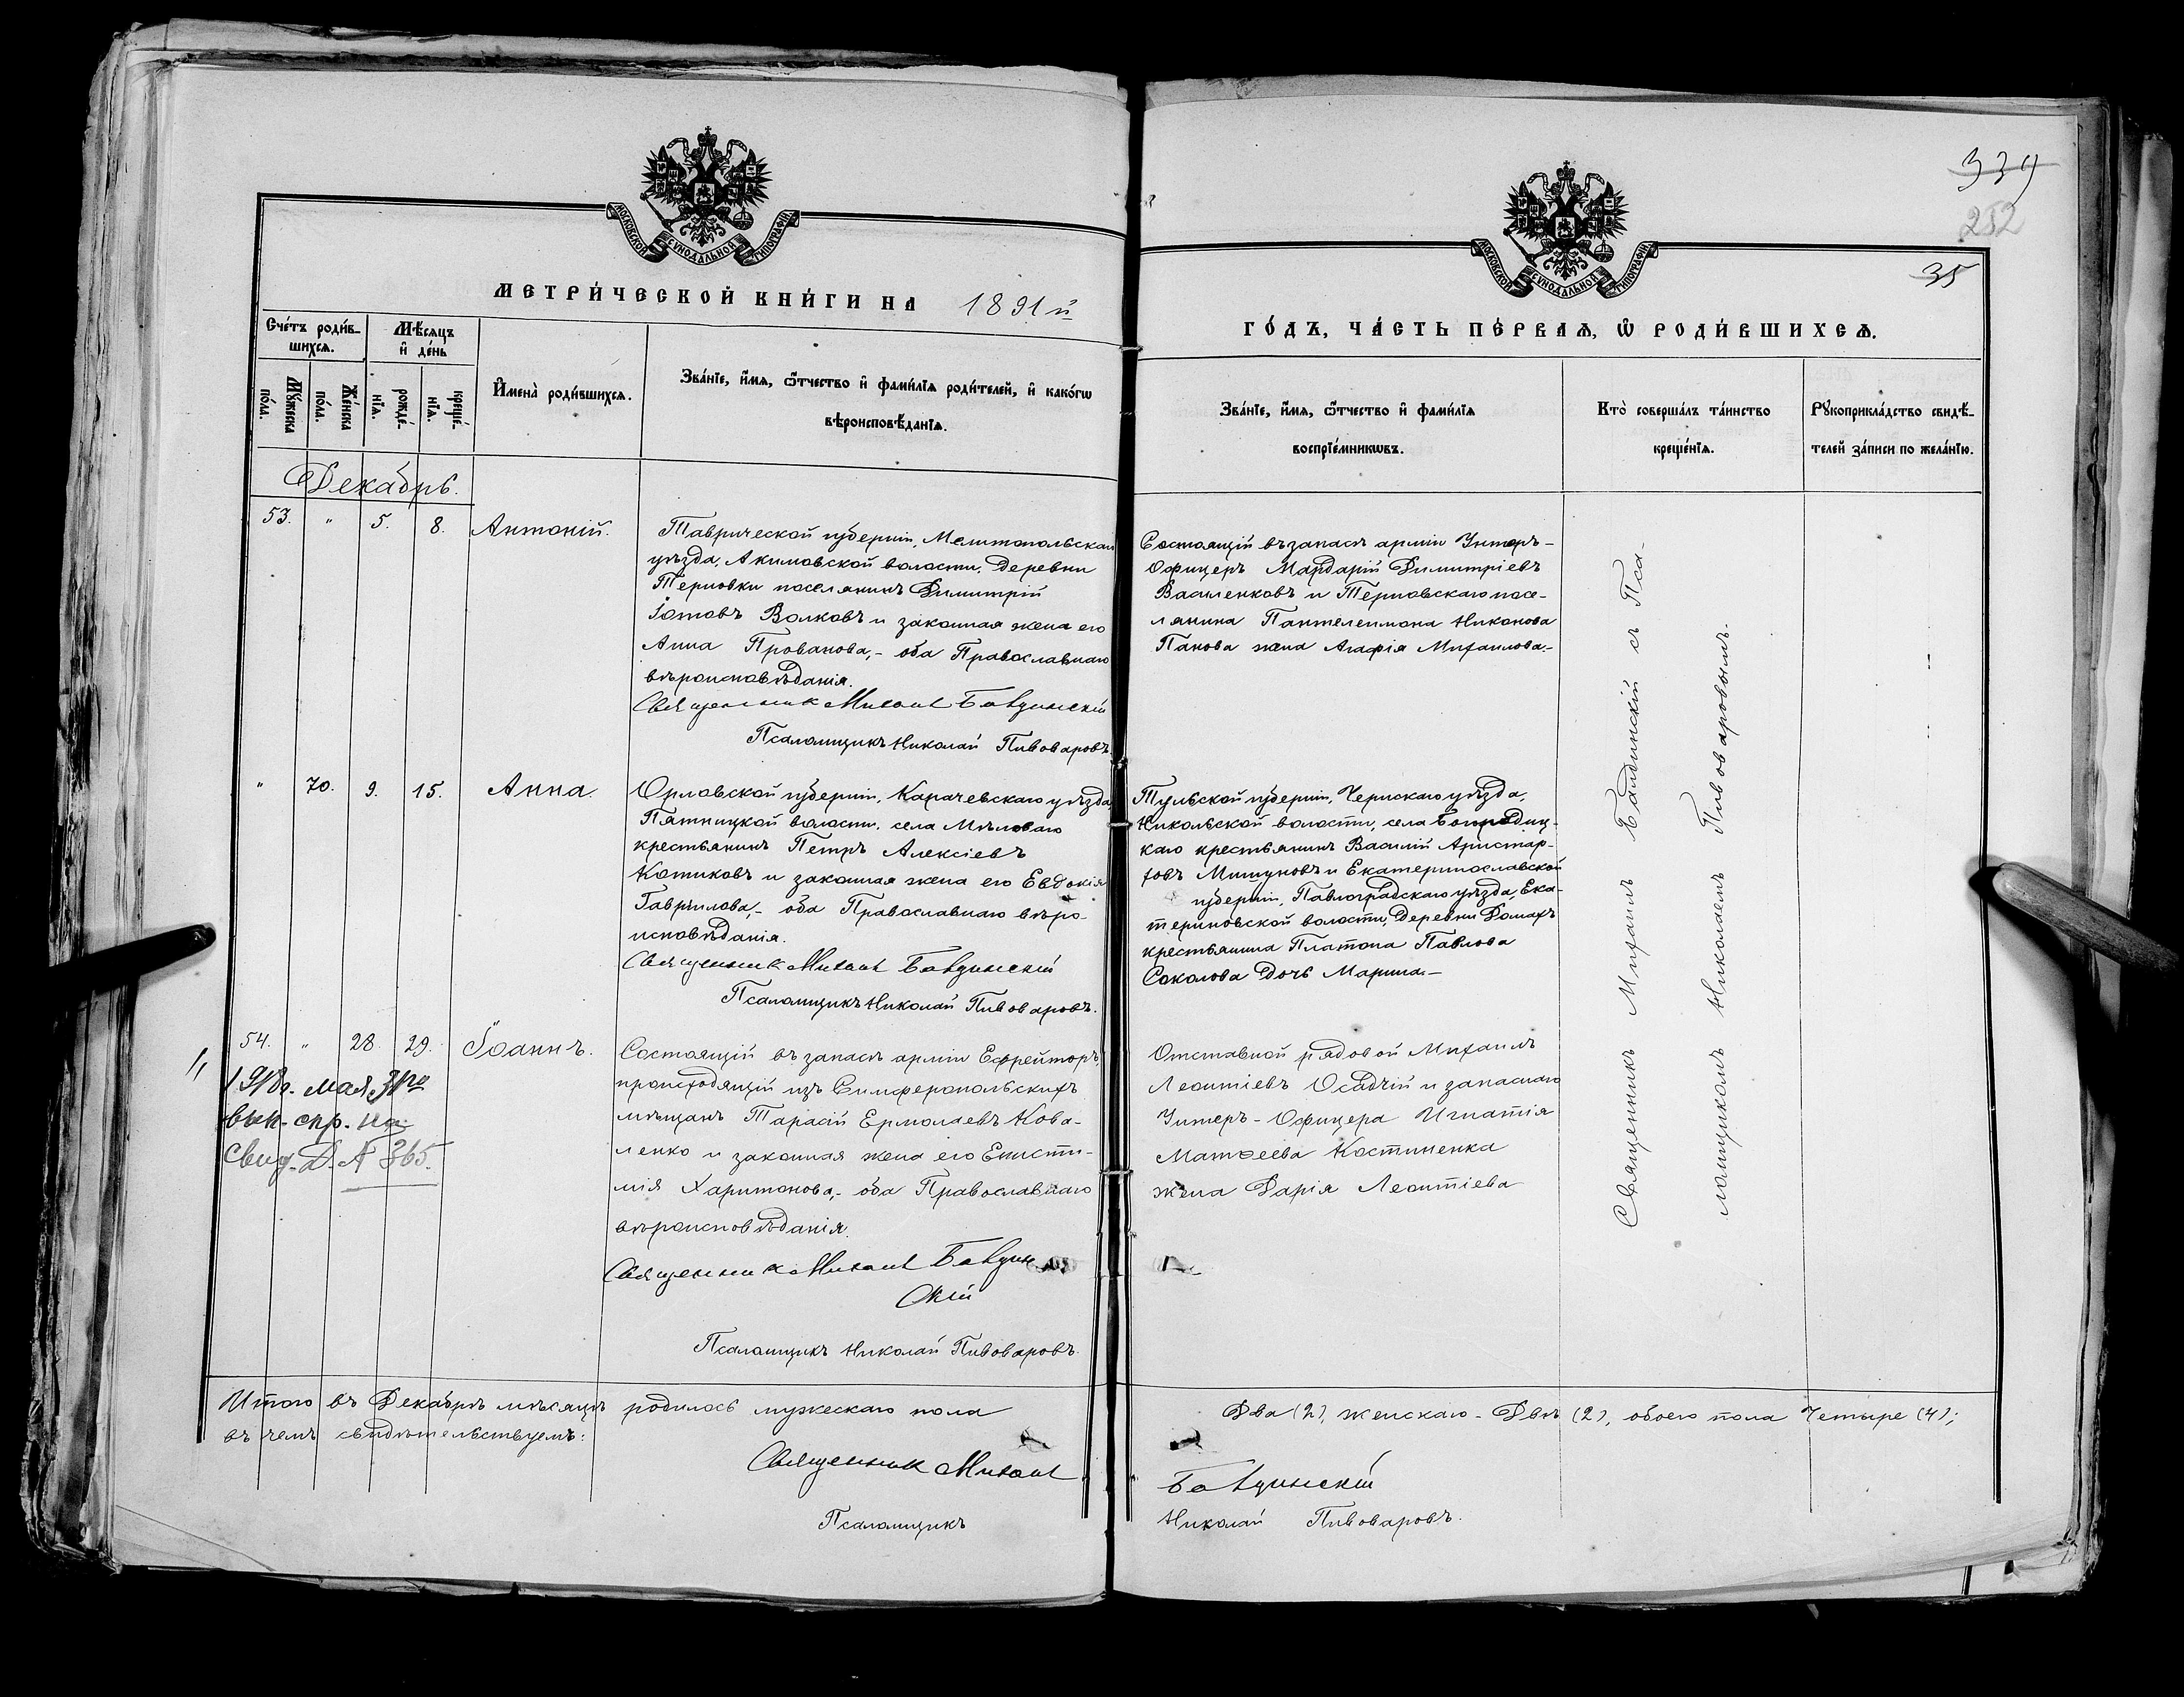 МОСКОВСКОЙ СѴНОДАЛЬНОЙ ТИПОГРАФІИ
МЕТРИ́ЧЕСКОЙ КНИ́ГИ НА 1891 й
Сче́тъ роди́в-
шихсѧ.
Мѣ́сѧцъ
и҆ де́нь
Мꙋ́жеска
по́ла.
Же́нска
по́ла.
рожде́-
нїѧ.
креще́-
нїѧ.
И҆мена̀ роди́вшихсѧ.
Зва́нїе, и҆́мѧ, ѻ҆́тчество и҆ фами́лїѧ роди́телей, и҆ како́гѡ
вѣроисповѣ́данїѧ.
Декабрь.
53. " 5. 8. Антоній.
Таврической губерніи, Мелитопольскаго
уѣзда, Акимовской волости, деревни
Терновки поселянинъ Димитрій
Іотовъ Волковъ и законная жена его
Анна Прованова,- оба Православнаго
вѣроисповѣданія.
Священникъ Михаилъ Балдинскій
Псаломщикъ Николай Пивоваровъ.
" 70. 9. 15. Анна.
Орловской губерніи, Карачевскаго уѣзда,
Пятницкой волости, села Мѣловаго
крестьянинъ Петръ Алексіевъ
Котиковъ и законная жена его Евдокія
Гавріилова,- оба Православнаго вѣро-
исповѣданія.
Священникъ Михаилъ Балдинскій
Псаломщикъ Николай Пивоваровъ.
54. " 28. 29. Іоаннъ.
Состоящій въ запасѣ арміи Ефрейторъ,
происходящій изъ Симферопольскихъ
мѣщанъ Тарасій Ермолаевъ Кова-
ленко и законная жена его Еписти-
мія Харитонова,- оба Православнаго
вѣроисповѣданія.
Священникъ Михаилъ Балдин
скій
Псаломщикъ Николай Пивоваровъ.
мая 31го
вып. спр. на
365.
Итого въ Декабрѣ мѣсяцѣ родилось мужескаго пола
въ чемъ свидѣтельствуемъ:
Священникъ Михаилъ
Псаломщикъ
339
252
35
МОСКОВСКОЙ СѴНОДАЛЬНОЙ ТИПОГРАФІИ
ГО́ДЪ, ЧА́СТЬ ПЕ́РВАѦ, Ѡ҆ РОДИ́ВШИХСѦ.
Зва́нїе, и҆́мѧ, ѻ҆́тчество и҆ фами́лїѧ
воспрїе́мникѡвъ.
Кто̀ соверша́лъ та́инство
креще́нїѧ.
Рꙋкоприкла́дство свидѣ́-
телей за́писи по жела́нїю.
Состоящій въ запасѣ арміи Унтеръ-
Офицеръ Мардарій Димитріевъ
Василенковъ и Терновскаго посе-
лянина Пантелеимона Никонова
Панова жена Агафія Михаилова.-
Тульской губерніи, Чернскаго уѣзда,
Никольской волости, села Богородиц-
каго крестьянинъ Василій Аристар-
ховъ Мишуновъ и Екатеринославской
губерніи, Павлоградскаго уѣзда, Ека-
териновской волости, деревни Домахъ
крестьянина Платона Павлова
Соколова дочь Марина.-
Отставной рядовой Михаилъ
Леонтіевъ Осадчій и запаснаго
Унтеръ-Офицера Игнатія
Матѳеева Костиненка
жена Дарія Леонтіева
Священникъ Михаилъ Балдинскій съ Пса-
ломщикомъ Николаемъ Пивоваровымъ.
Два (2), женскаго - Двѣ (2), обоего пола Четыре (4);
Балдинскій
Николай Пивоваровъ.